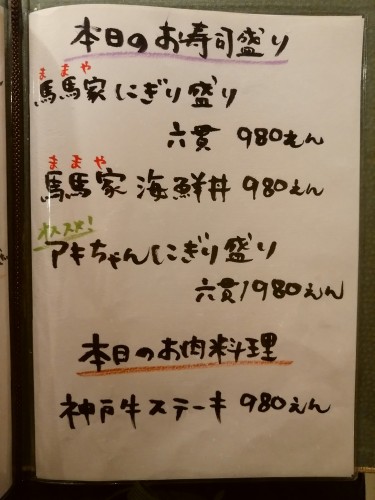 本日のお寿司盛り
ままや
馬馬家にぎり盛り
六貫 980えん
ままや
馬馬家 海鮮丼 980えん
オススメ!
アキちゃんにぎり盛り
六貫1980えん
本日のお肉料理
神戸牛ステーキ 980えん